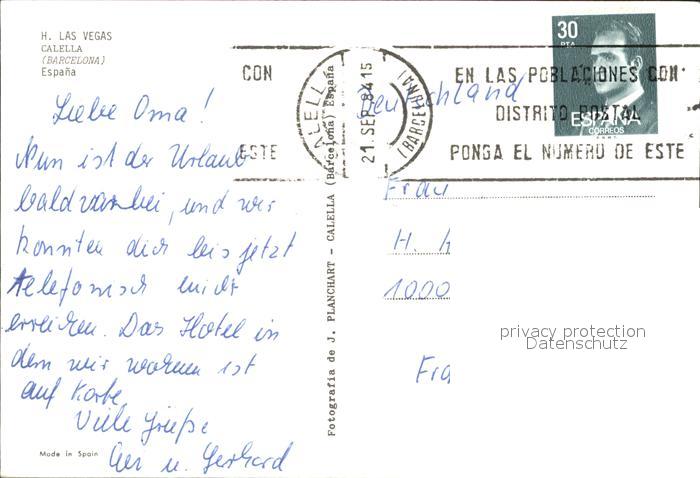 H. LAS VEGAS
CALELLA
(BARCELONA)
España
Liebe Oma!
Nun ist der Urlaub
bald vorbei, und wir
konnten dich bis jetzt
telefonisch nicht
erreichen. Das Hotel in
dem wir wohnen ist
auf Karte.
Viele Grüße
u. Gerhard
Made in Spain
Fotografía de J. PLANCHART - CALELLA (Barcelona) España
CON
ESTE
CALELLA
21. SEP 84 15
(BARCELONA)
EN LAS POBLACIONES CON
DISTRITO POSTAL
PONGA EL NUMERO DE ESTE
30
PTA
ESPAÑA
CORREOS
Deutschland
Frau
H. h
1000
Fra
privacy protection
Datenschutz